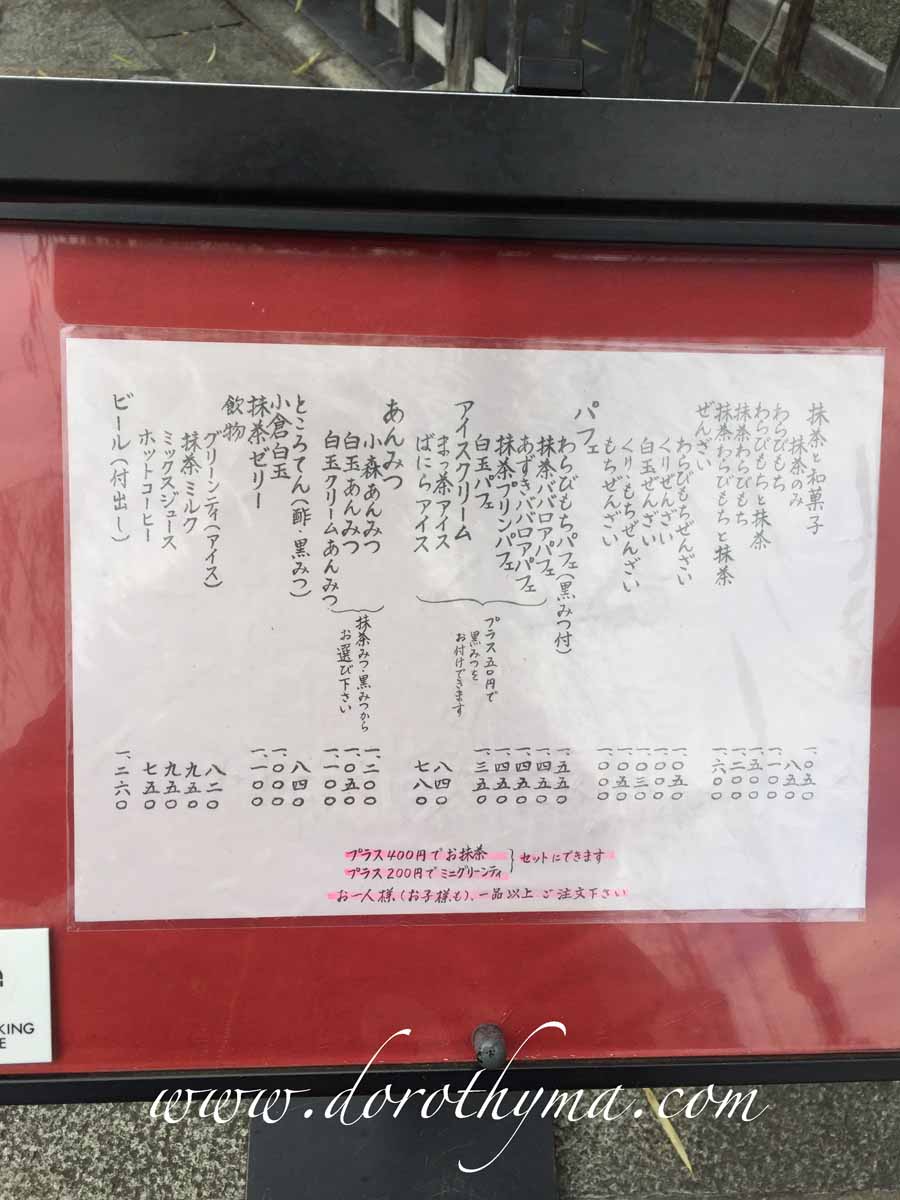 抹茶と和菓子 一、〇五〇
抹茶のみ 八五〇
わらびもち 一、一〇〇
わらびもちと抹茶 一、五〇〇
抹茶わらびもち 一、二〇〇
抹茶わらびもちと抹茶 一、六〇〇
ぜんざい
わらびもちぜんざい 一、〇五〇
くりぜんざい 一、〇〇〇
白玉ぜんざい 一、〇三〇
くりもちぜんざい 一、〇五〇
もちぜんざい 一、〇〇〇
パフェ
わらびもちパフェ(黒みつ付) 一、五五〇
抹茶ババロアパフェ 一、四五〇
あずきババロアパフェ 一、四五〇
抹茶プリンパフェ 一、四五〇
白玉パフェ 一、三五〇
アイスクリーム
まっ茶アイス 八四〇
ばにらアイス 七八〇
プラス五〇円で
黒みつを
お付けできます
あんみつ
小森あんみつ 一、二〇〇
白玉あんみつ 一、〇五〇
白玉クリームあんみつ 一、一〇〇
抹茶みつ・黒みつから
お選び下さい
ところてん(酢・黒みつ) 八四〇
小倉白玉 一、〇〇〇
抹茶ゼリー 一、一〇〇
飲物
グリーンティ(アイス) 八二〇
抹茶ミルク 九五〇
ミックスジュース 九五〇
ホットコーヒー 七五〇
ビール(付出し) 一、二六〇
プラス400円でお抹茶
プラス200円でミニグリーンティ
セットにできます
お一人様、(お子様も)、一品以上ご注文下さい
KING
E
www.dorothyma.com